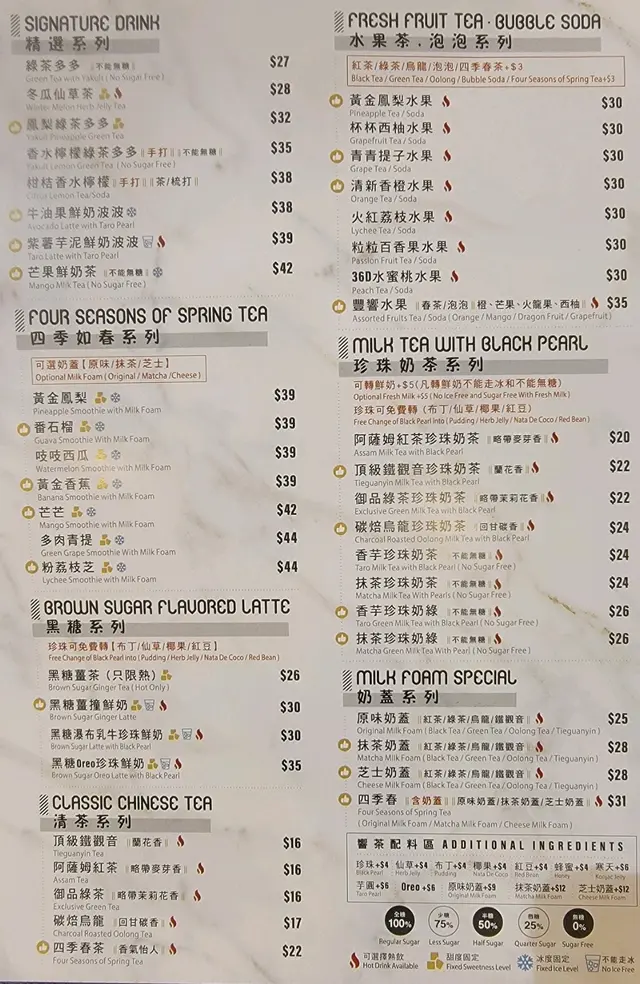 SIGNATURE DRINK
精選系列
綠茶多多 ‖不能無糖‖ $27
Green Tea with Yakult ( No Sugar Free )
冬瓜仙草茶 $28
Winter Melon Herb Jelly Tea
鳳梨綠茶多多 $32
Yakult Pineapple Green Tea
香水檸檬綠茶多多 ‖手打‖不能無糖‖ $35
Yakult Lemon Green Tea ( No Sugar Free )
柑桔香水檸檬 ‖手打‖ ‖茶/梳打‖ $38
Citrus Lemon Tea/Soda
牛油果鮮奶波波 $38
Avocado Latte with Taro Pearl
紫薯芋泥鮮奶波波 $39
Taro Latte with Taro Pearl
芒果鮮奶茶 ‖不能無糖‖ $42
Mango Milk Tea ( No Sugar Free )
FOUR SEASONS OF SPRING TEA
四季如春系列
可選奶蓋【原味/抹茶/芝士】
Optional Milk Foam ( Original / Matcha /Cheese )
黃金鳳梨 $39
Pineapple Smoothie with Milk Foam
番石榴 $39
Guava Smoothie with Milk Foam
吱吱西瓜 $39
Watermelon Smoothie with Milk Foam
黃金香蕉 $39
Banana Smoothie with Milk Foam
芒芒 $42
Mango Smoothie with Milk Foam
多肉青提 $44
Green Grape Smoothie with Milk Foam
粉荔枝芝 $44
Lychee Smoothie with Milk Foam
BROWN SUGAR FLAVORED LATTE
黑糖系列
珍珠可免費轉【布丁/仙草/椰果/紅豆】
Free Change of Black Pearl into ( Pudding / Herb Jelly / Nata De Coco / Red Bean )
黑糖薑茶（只限熱） $26
Brown Sugar Ginger Tea ( Hot Only )
黑糖薑撞鮮奶 $30
Brown Sugar Ginger Latte
黑糖瀑布乳牛珍珠鮮奶 $30
Brown Sugar Latte with Black Pearl
黑糖Oreo珍珠鮮奶 $35
Brown Sugar Oreo Latte with Black Pearl
CLASSIC CHINESE TEA
清茶系列
頂級鐵觀音 ‖蘭花香‖ $16
Tieguanyin Tea
阿薩姆紅茶 ‖略帶麥芽香‖ $16
Assam Tea
御品綠茶 ‖略帶茉莉花香‖ $16
Exclusive Green Tea
碳焙烏龍 ‖回甘碳香‖ $17
Charcoal Roasted Oolong Tea
四季春茶 ‖香氣怡人‖ $22
Four Seasons of Spring Tea
FRESH FRUIT TEA · BUBBLE SODA
水果茶.泡泡系列
紅茶/綠茶/烏龍/泡泡/四季春茶+$3
Black Tea / Green Tea / Oolong / Bubble Soda / Four Seasons of Spring Tea+$3
黃金鳳梨水果 $30
Pineapple Tea / Soda
杯杯西柚水果 $30
Grapefruit Tea / Soda
青青提子水果 $30
Grape Tea / Soda
清新香橙水果 $30
Orange Tea / Soda
火紅荔枝水果 $30
Lychee Tea / Soda
粒粒百香果水果 $30
Passion Fruit Tea / Soda
360水蜜桃水果 $30
Peach Tea / Soda
豐響水果 ‖春茶/泡泡‖橙、芒果、火龍果、西柚‖ $35
Assorted Fruits Tea / Soda ( Orange / Mango / Dragon Fruit / Grapefruit )
MILK TEA WITH BLACK PEARL
珍珠奶茶系列
可轉鮮奶+$5(凡轉鮮奶不能走冰和不能無糖)
Optional Fresh Milk +$5 ( No Ice Free and Sugar Free With Fresh Milk )
珍珠可免費轉（布丁/仙草/椰果/紅豆）
Free Change of Black Pearl into ( Pudding / Herb Jelly / Nata De Coco / Red Bean )
阿薩姆紅茶珍珠奶茶 ‖略帶麥芽香‖ $20
Assam Milk Tea with Black Pearl
頂級鐵觀音珍珠奶茶 ‖蘭花香‖ $22
Tieguanyin Milk Tea with Black Pearl
御品綠茶珍珠奶茶 ‖略帶茉莉花香‖ $22
Exclusive Green Milk Tea with Black Pearl
碳焙烏龍珍珠奶茶 ‖回甘碳香‖ $24
Charcoal Roasted Oolong Milk Tea with Black Pearl
香芋珍珠奶茶 ‖不能無糖‖ $24
Taro Milk Tea with Black Pearl ( No Sugar Free )
抹茶珍珠奶茶 ‖不能無糖‖ $24
Matcha Milk Tea With Pearls ( No Sugar Free )
香芋珍珠奶綠 ‖不能無糖‖ $26
Taro Green Milk Tea with Black Pearl ( No Sugar Free )
抹茶珍珠奶綠 ‖不能無糖‖ $26
Matcha Green Milk Tea with Black Pearl ( No Sugar Free )
MILK FOAM SPECIAL
奶蓋系列
原味奶蓋 ‖紅茶/綠茶/烏龍/鐵觀音‖ $25
Original Milk Foam ( Black Tea / Green Tea / Oolong Tea / Tieguanyin )
抹茶奶蓋 ‖紅茶/綠茶/烏龍/鐵觀音‖ $28
Matcha Milk Foam ( Black Tea / Green Tea / Oolong Tea / Tieguanyin )
芝士奶蓋 ‖紅茶/綠茶/烏龍/鐵觀音‖ $28
Cheese Milk Foam ( Black Tea / Green Tea / Oolong Tea / Tieguanyin )
四季春 ‖含奶蓋‖原味奶蓋/抹茶奶蓋/芝士奶蓋‖ $31
Four Seasons of Spring Tea
( Original Milk Foam / Matcha Milk Foam / Cheese Milk Foam )
響茶配料區 ADDITIONAL INGREDIENTS
珍珠+$4 仙草+$4 布丁+$4 椰果+$4 紅豆+$4 蜂蜜+$4 寒天+$6
Black Pearl Herb Jelly Pudding Nata De Coco Red Bean Honey Konjac Jelly
芋圓+$6 Oreo +$6 原味奶蓋+$9 抹茶奶蓋+$12 芝士奶蓋+$12
Taro Pearl Original Milk Foam Matcha Milk Foam Cheese Milk Foam
全糖 100% 少糖 75% 半糖 50% 微糖 25% 無糖 0%
Regular Sugar Less Sugar Half Sugar Quarter Sugar Sugar Free
可選擇熱飲 甜度固定 冰度固定 不能走冰
Hot Drink Available Fixed Sweetness Level Fixed Ice Level No Ice Free